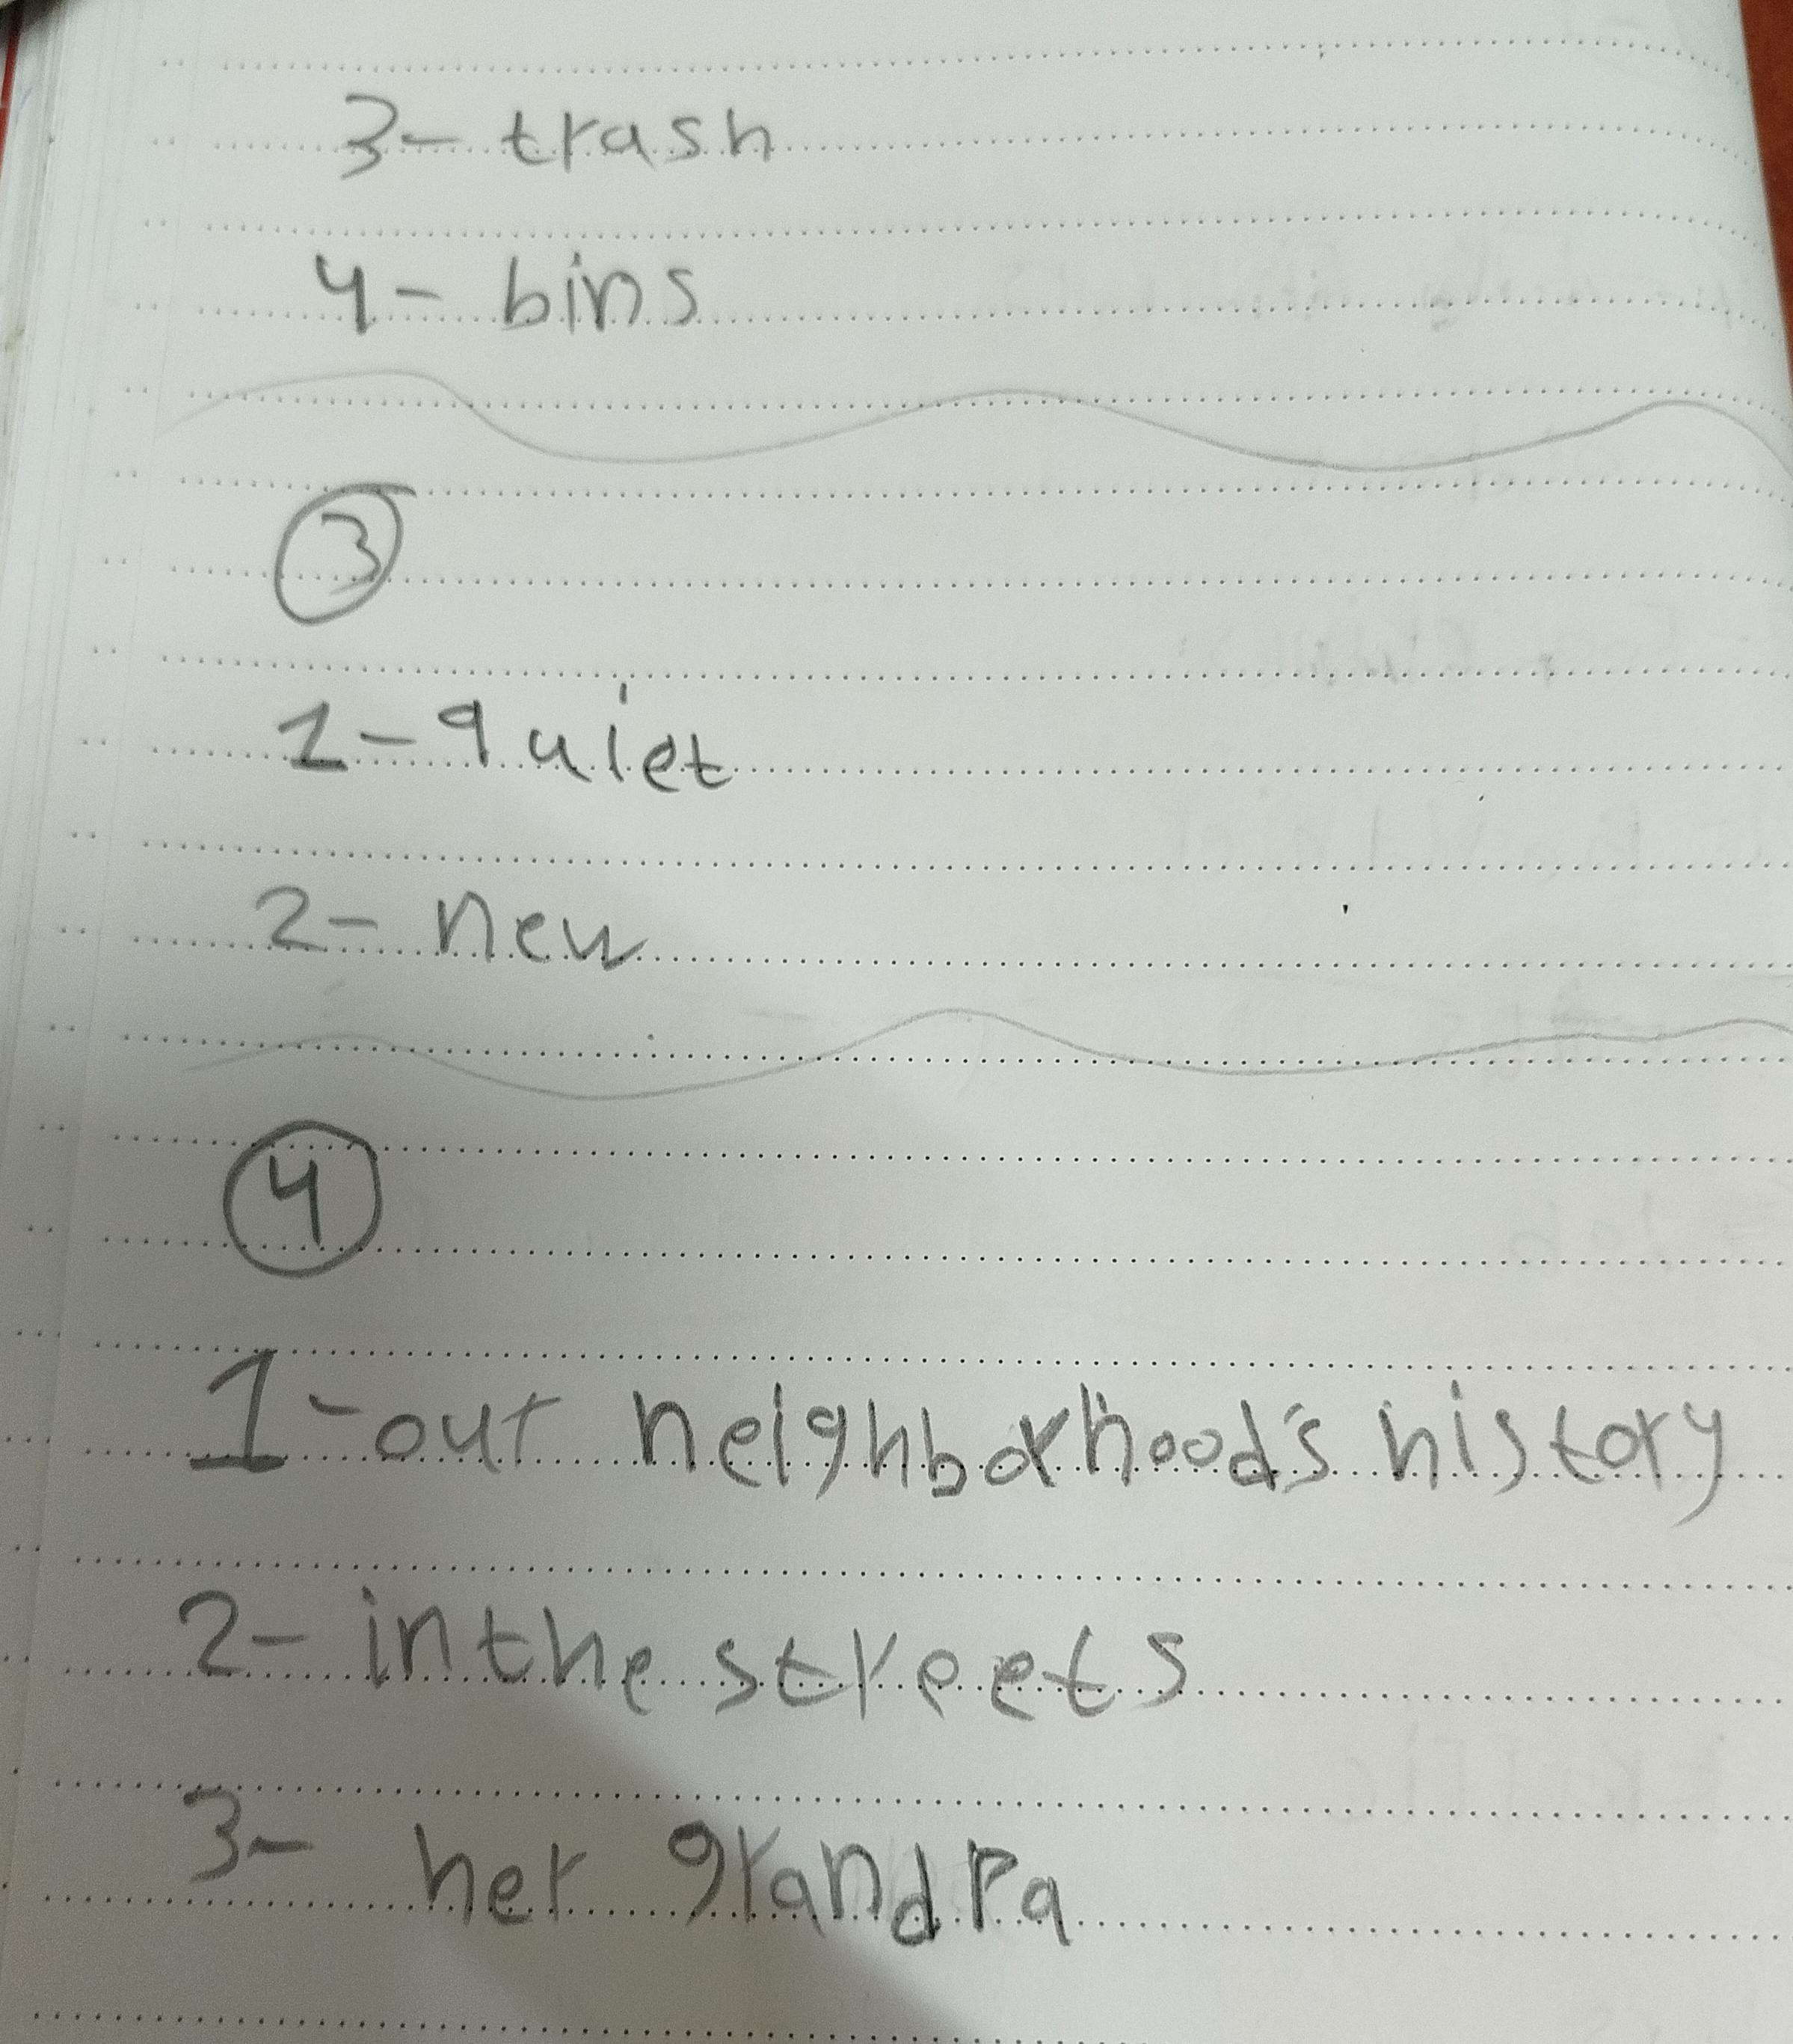 3- trash
4- bins
3
1- quiet
2- new
4
1- our neighborhood's history
2- in the streets
3- her grandpa